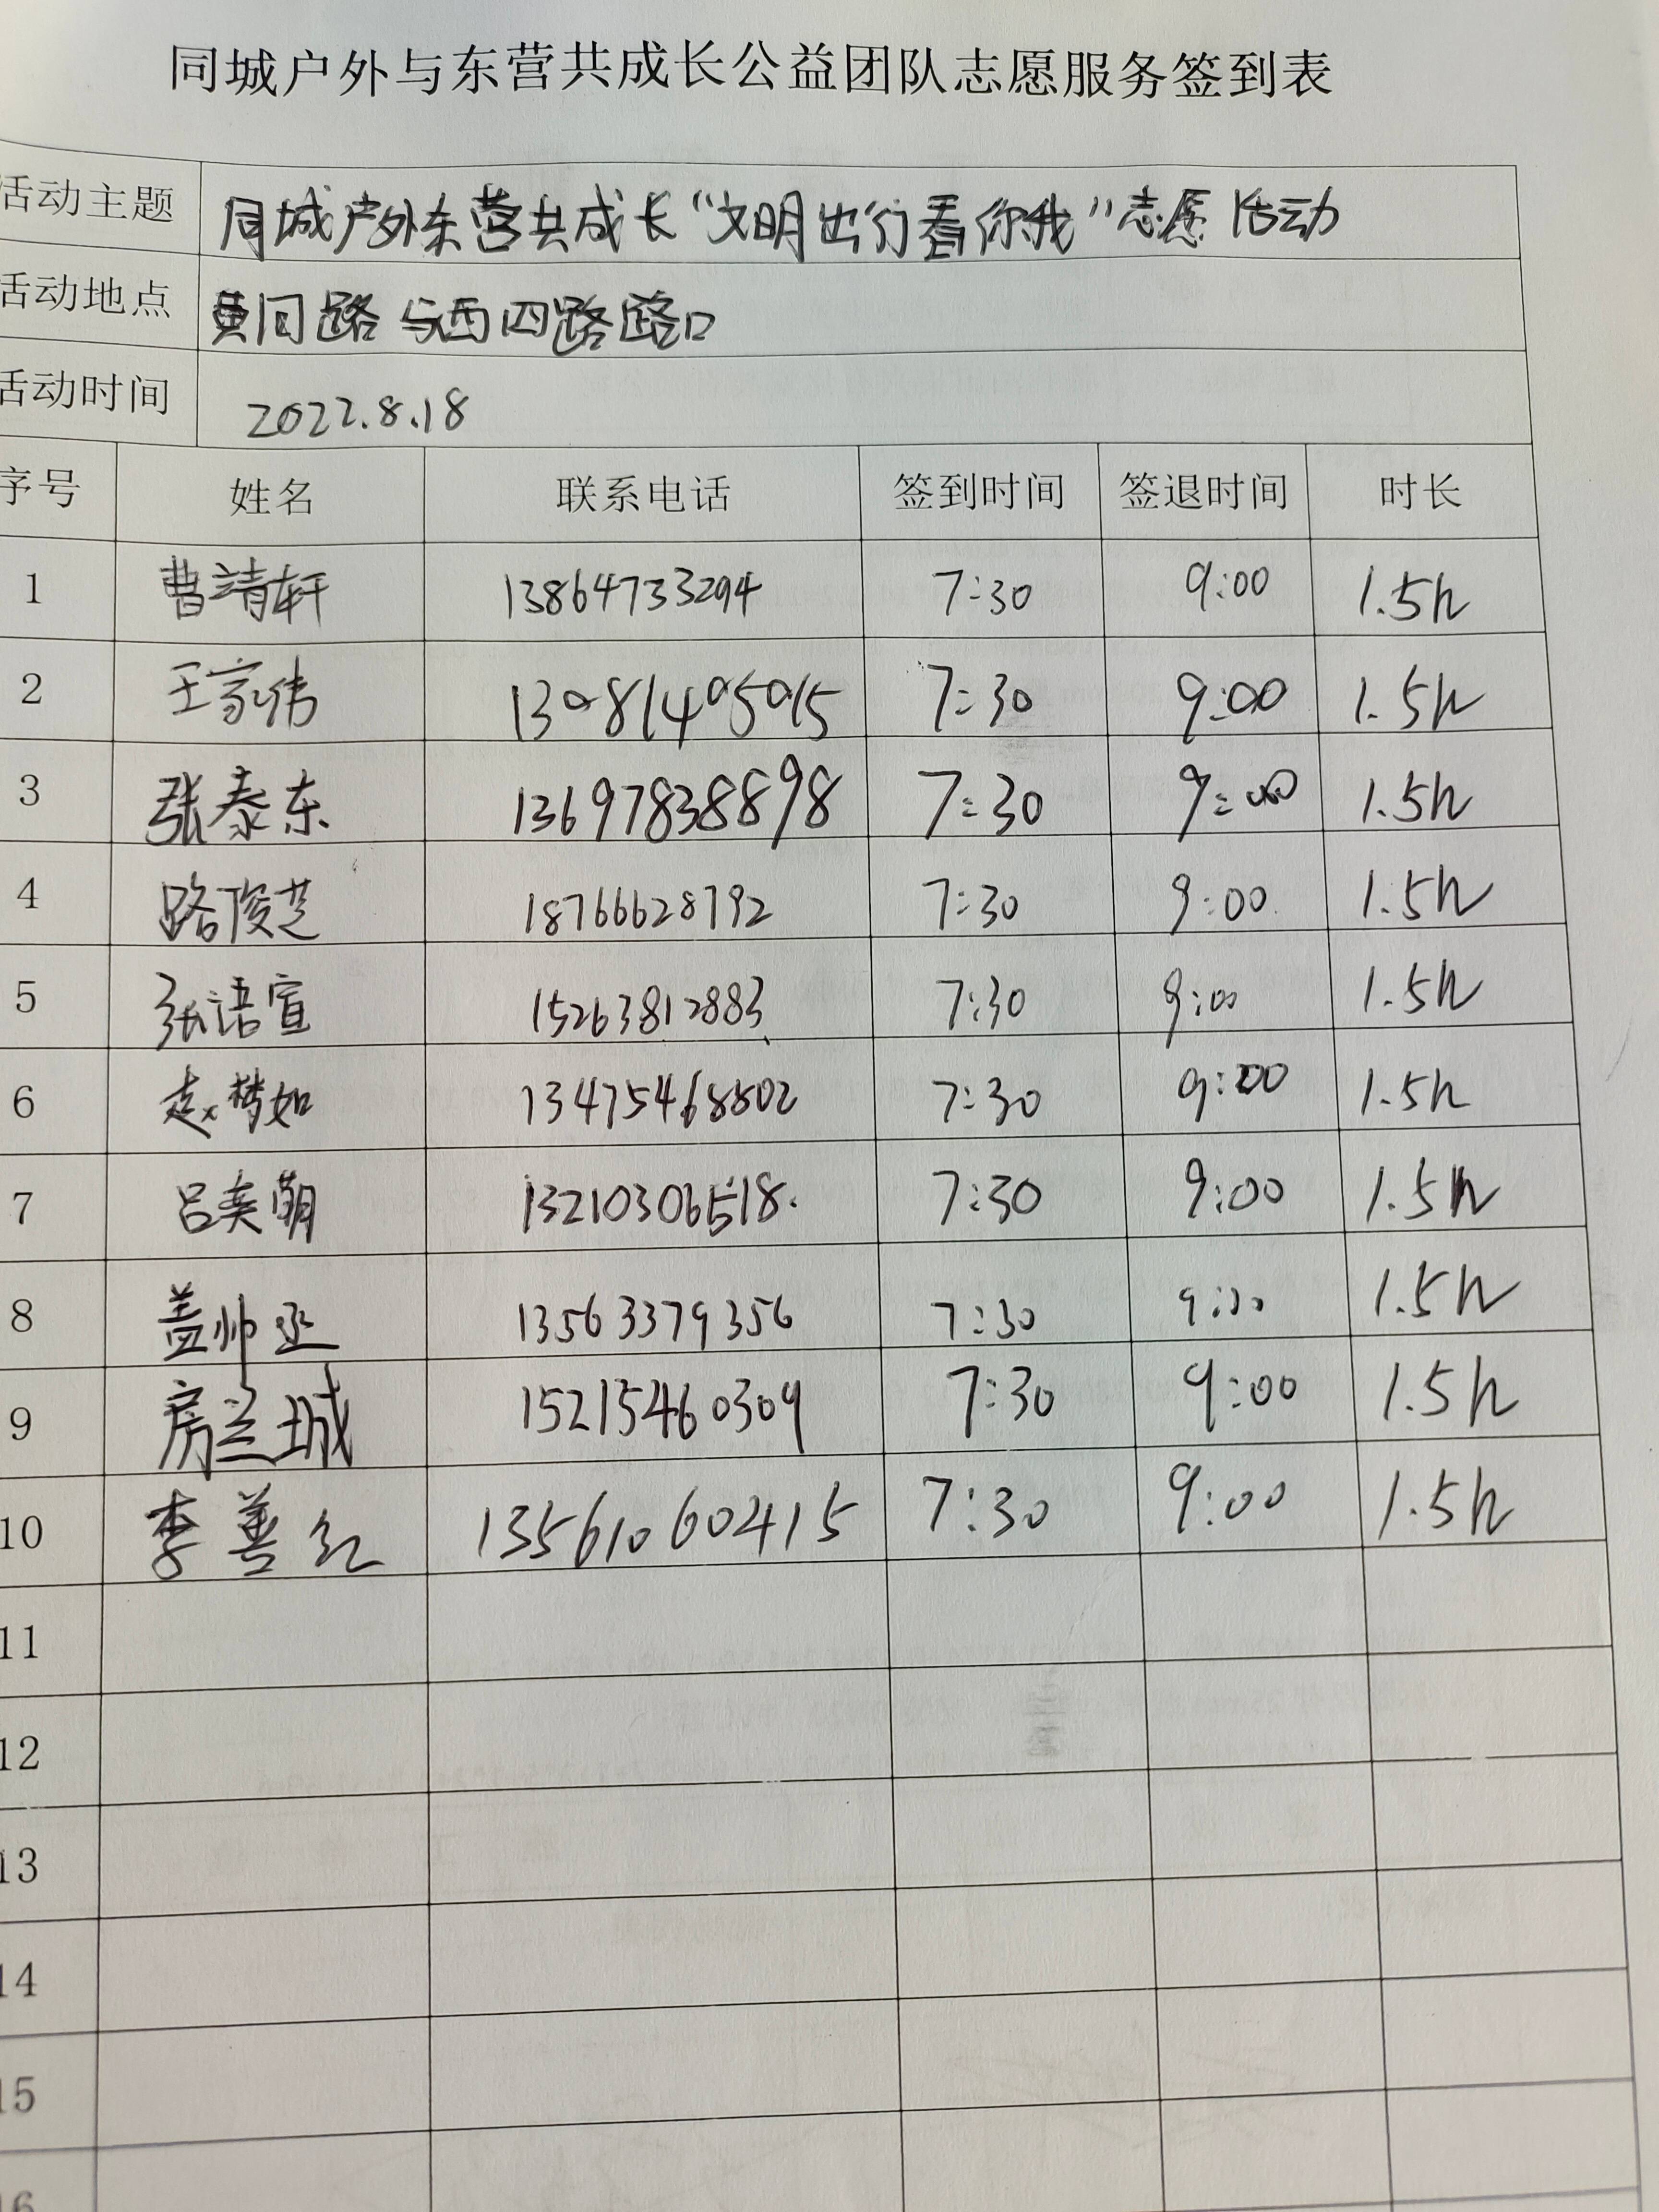 同城户外与东营共成长公益团队志愿服务签到表
活动主题 同城户外东营共成长“文明出行看你我”志愿活动
活动地点 黄河路与西四路路口
活动时间 2022.8.18
序号 姓名 联系电话 签到时间 签退时间 时长
1 曹靖轩 13864733294 7:30 9:00 1.5h
2 王家伟 7:30 9:00 1.5h
3 张泰东 13697838898 7:30 9:00 1.5h
4 路俊芝 18766628792 7:30 9:00 1.5h
5 张语宣 15263812883 7:30 9:00 1.5h
6 赵梦如 13475468802 7:30 9:00 1.5h
7 吕奕萌 13210306518. 7:30 9:00 1.5h
8 盖帅丞 13563379356 7:30 9:00 1.5h
9 房兰城 15215460309 7:30 9:00 1.5h
10 李善红 135610602415 7:30 9:00 1.5h
11
12
13
14
15
16